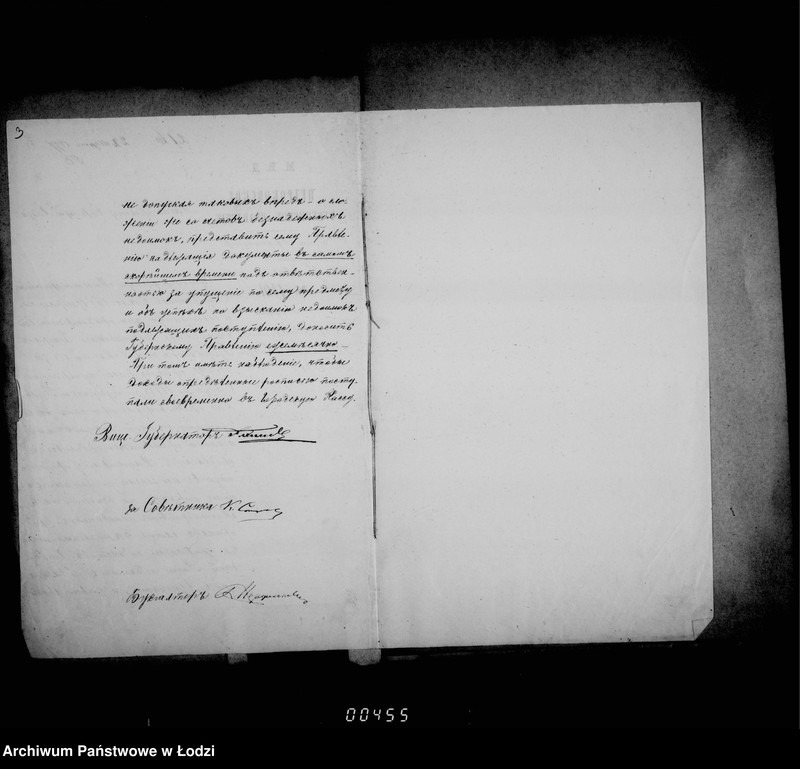 3
не допуская таковыхъ впредь – о сло-
женіи же со счетовъ безнадежныхъ
недоимокъ, представить сему Правле-
нію надлежащія документы въ самомъ
скорѣйшемъ времени подъ отвѣтствен-
ностью за упущеніе по сему предмету
и объ успѣхѣ по взысканію недоимокъ
подлежащихъ поступленію, доносить
Губернскому Правленію ежемѣсячно –
При томъ имѣть наблюденіе, чтобы
доходы опредѣленные росписью посту-
пали своевременно въ Городскую Кассу.
Вице Губернаторъ
за Совѣтника К.
Бухгалтеръ
00455
Archiwum Państwowe w Łodzi